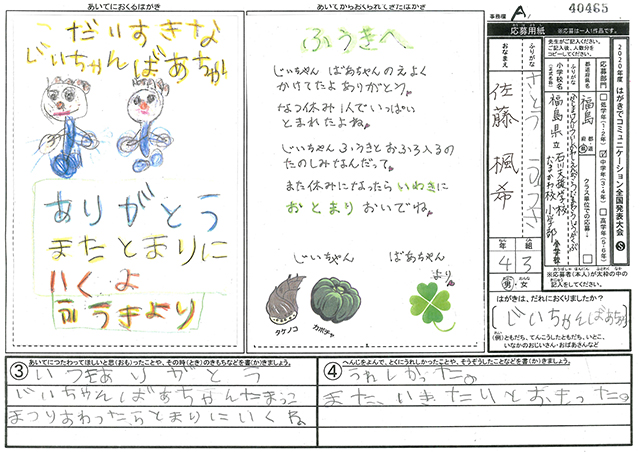 あいてにおくるはがき
だいすきな
じいちゃんばあちゃん
ありがとう
またとまりに
いくよ
ふうきより
あいてからおくられてきたはがき
ふうきへ
じいちゃん ばあちゃんのえよく
かけてたよ ありがとう。
なつ休み 1人でいっぱい
とまれたよね。
じいちゃん ふうきとおふろ入るの
たのしみなんだって。
また休みになったら いわきに
おとまり おいでね。
じいちゃん
ばあちゃん
より
タケノコ
カボチャ
事務欄 A
40465
2020年度 はがきでコミュニケーション全国発表大会 S
応募用紙
※応募は一人1作品です。
先生がご記入ください。
ご記入後、人数分を
コピーしてください。
応募部門
低学年(1・2年)
中学年(3・4年)
高学年(5・6年)
都道府県名
福島
クラス単位での応募
小学校名
(正式名称)
福島県立 石川支援学校
たまかわ校 小学部
ふりがな
さとう ふうき
おなまえ
佐藤 楓希
年 組
4 3
男・女
※応募者(本人)が太枠の中の
記入をしてください。
はがきは、だれにおくりましたか?
じいちゃんばあちゃん
(例)ともだち、てんこうしたともだち、いとこ、
いなかのおじいさん・おばあさんなど
③ あいてにつたわってほしいと思(おも)ったことや、その時(とき)のきもちなどを書(か)きましょう。
いつもありがとう
じいちゃんばあちゃん
まつりおわったらとまりにいくね
④ へんじをよんで、とくにうれしかったことや、そうぞうしたことなどを書(か)きましょう。
うれしかった。
また、いきたいとおもった。